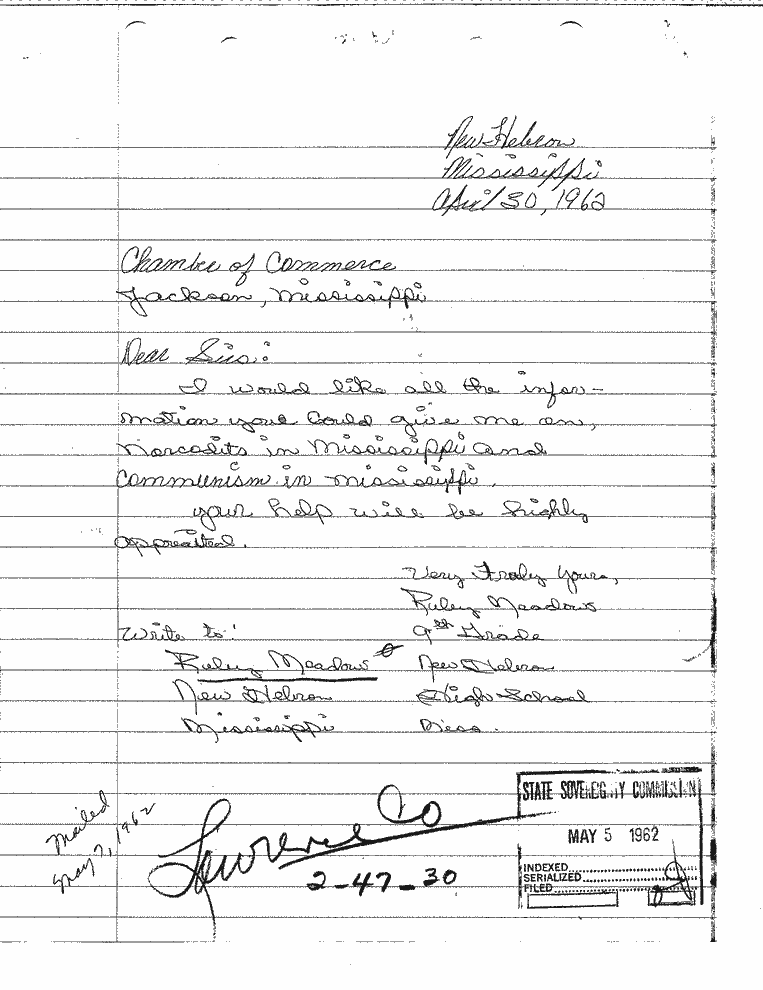 New Hebron
Mississippi
April 30, 1962
Chamber of Commerce
Jackson, Mississippi
Dear Sirs:
I would like all the infor-
mation your could give me on,
Narcadits in Mississippi and
Communism in Mississippi.
your help will be highly
appreaited.
Very Truly Yours,
Ruley Meadows
9th Grade
Write to:
Ruley Meadows
New Hebron
New Hebron
High School
Mississippi
Miss.
Mailed
May 7, 1962
Lawrence Co
2-47-30
STATE SOVEREIGNTY COMMISSION
MAY 5 1962
INDEXED
SERIALIZED
FILED